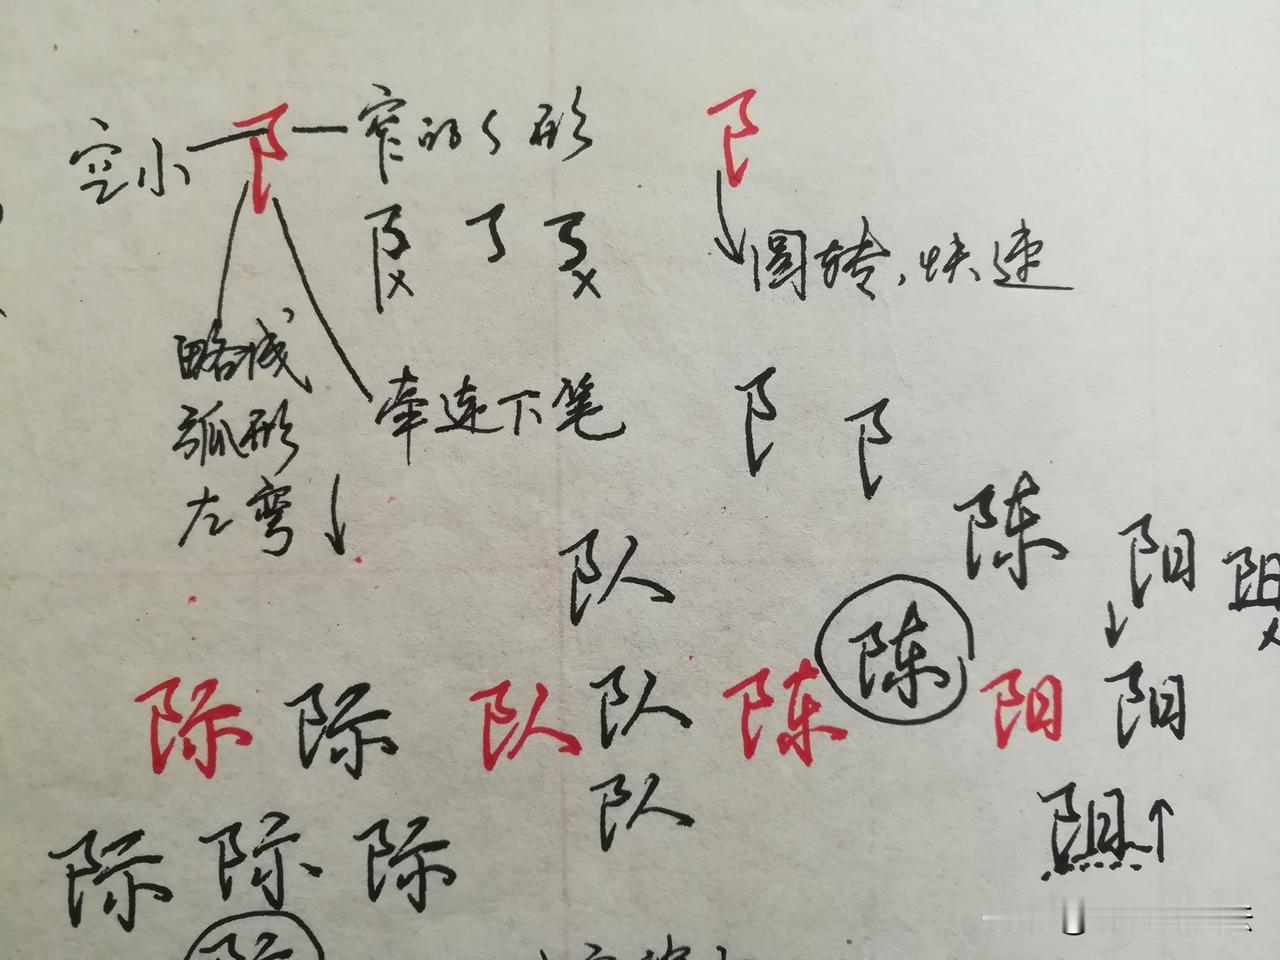 空小 阝 窄的 形 阝
阝
圆转，快速
略成
弧形
左弯
牵连下笔
阝 阝
陈
队 阳 阻
陈
际 际 队 队 陈 阳 阳
队 阻
际 际 际
际